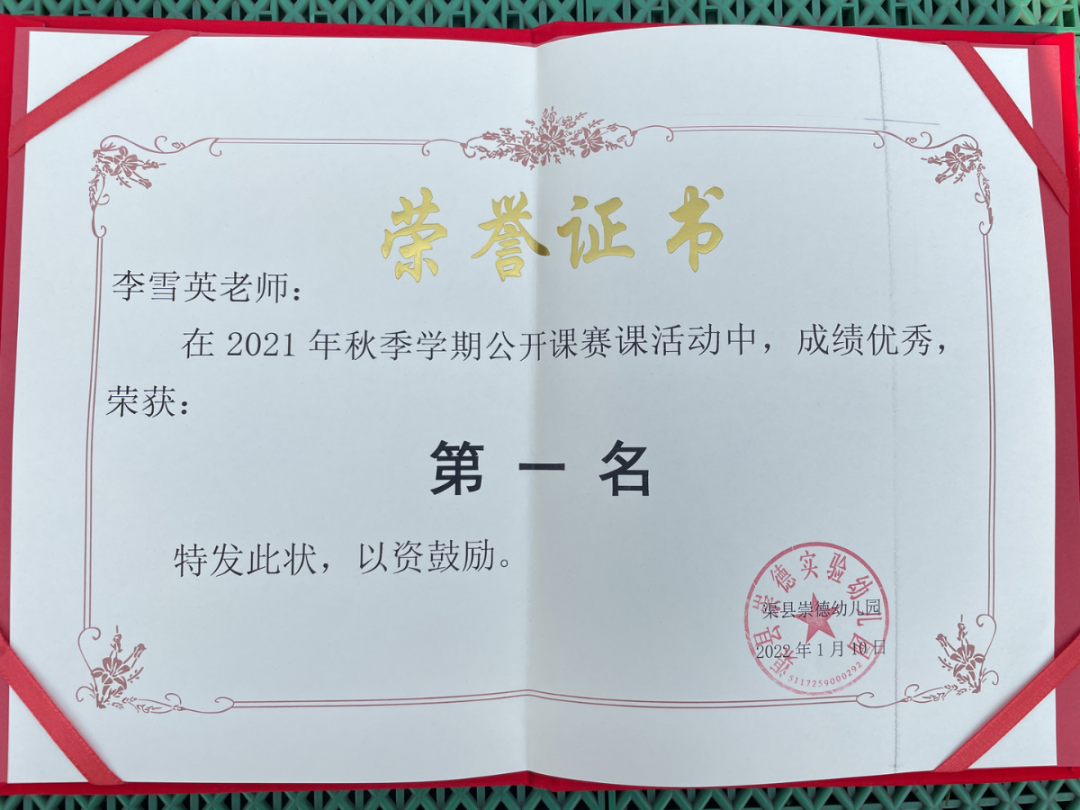 荣誉证书
李雪英老师：
在 2021 年秋季学期公开课赛课活动中，成绩优秀，
荣获：
第一名
特发此状，以资鼓励。
渠县崇德实验幼儿园
渠县崇德幼儿园
2022 年 1 月 10 日
5117259000292